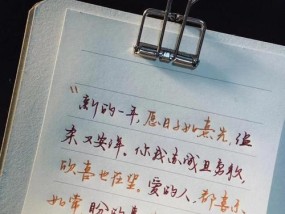 “新的一年,愿日子如熹光,温
柔又安详。你我赤诚且勇敢,
欣喜也在望。爱的人,都喜乐
如常 盼的